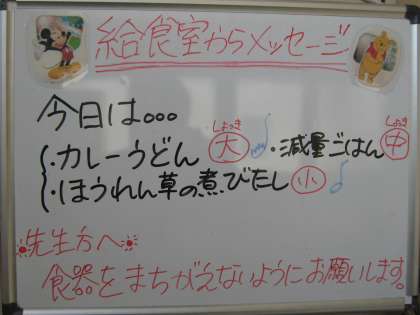 給食室からメッセージ
今日は。。。
・カレーうどん 大 ・減量ごはん 中
しょっき しょっき
・ほうれん草の煮びたし 小
先生方へ
食器をまちがえないようにお願いします。